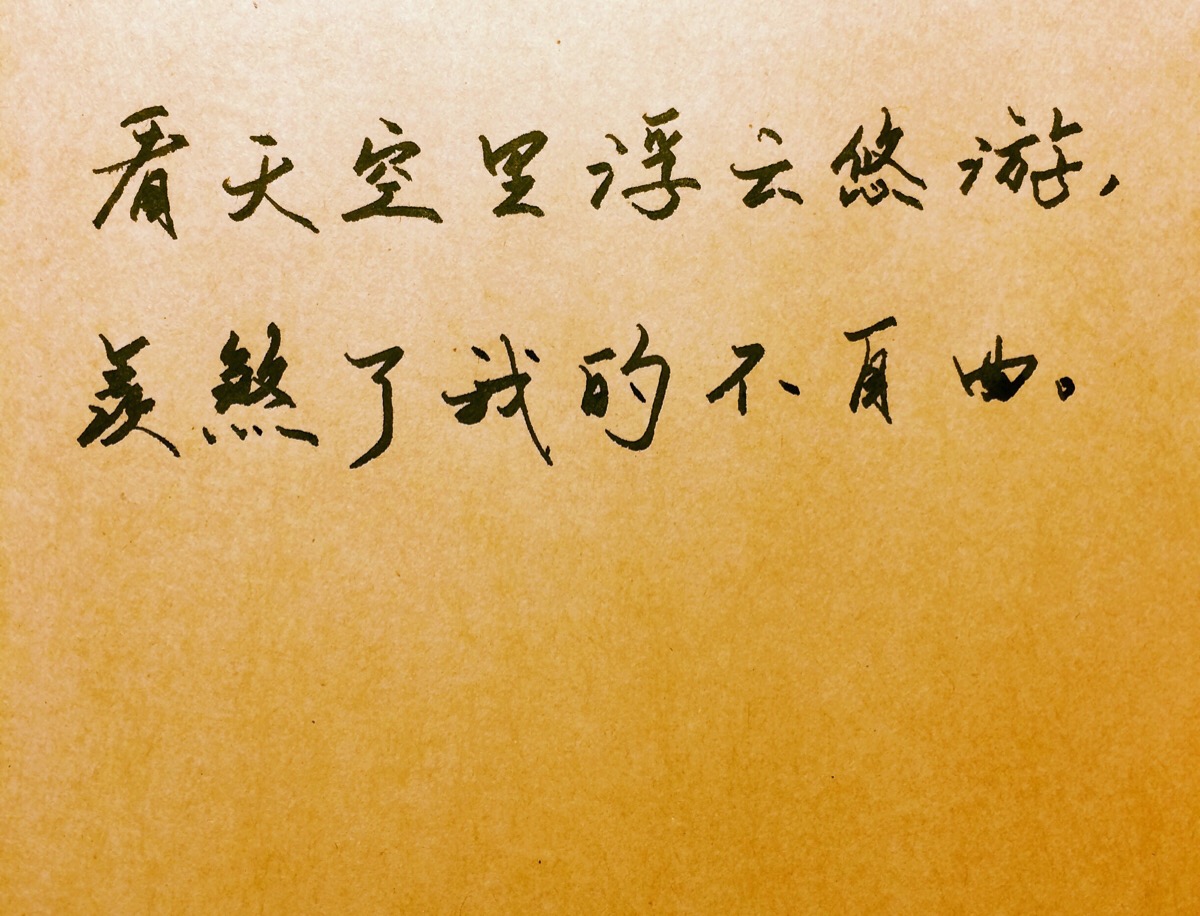 看天空里浮云悠游,
羡煞了我的不自由。